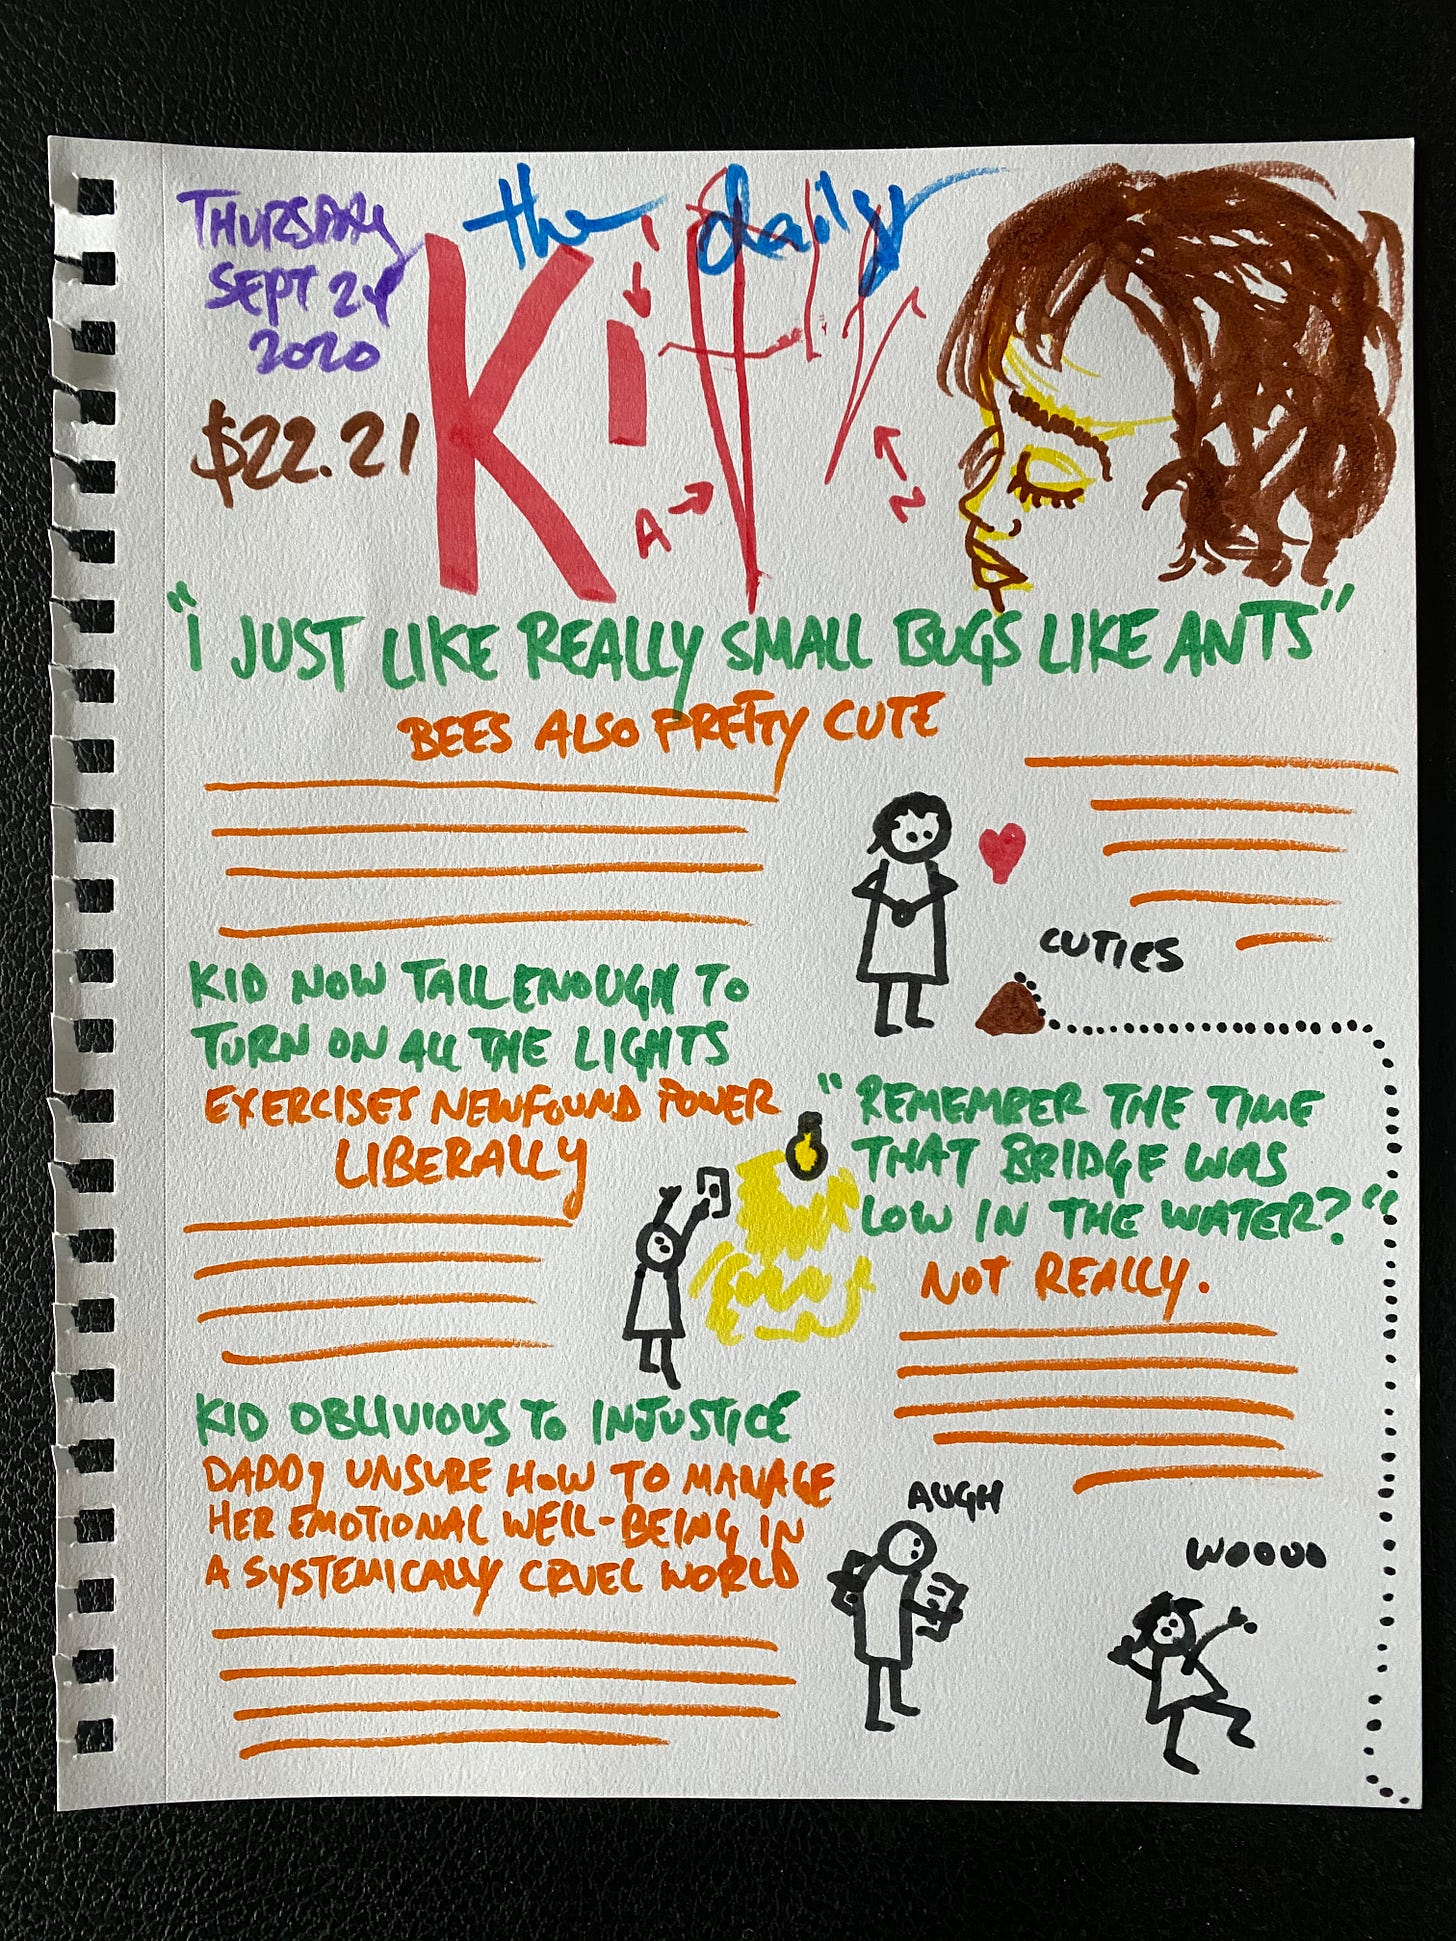 THURSDAY
SEPT 24
2020
$22.21
the daily
Ki
A
"I JUST LIKE REALLY SMALL BUGS LIKE ANTS"
BEES ALSO PRETTY CUTE
CUTIES
KID NOW TALL ENOUGH TO
TURN ON ALL THE LIGHTS
EXERCISES NEWFOUND POWER
LIBERALLY
"REMEMBER THE TIME
THAT BRIDGE WAS
LOW IN THE WATER?"
NOT REALLY.
KID OBLIVIOUS TO INJUSTICE
DADDY UNSURE HOW TO MANAGE
HER EMOTIONAL WELL-BEING IN
A SYSTEMICALLY CRUEL WORLD
AUGH
WOOOO